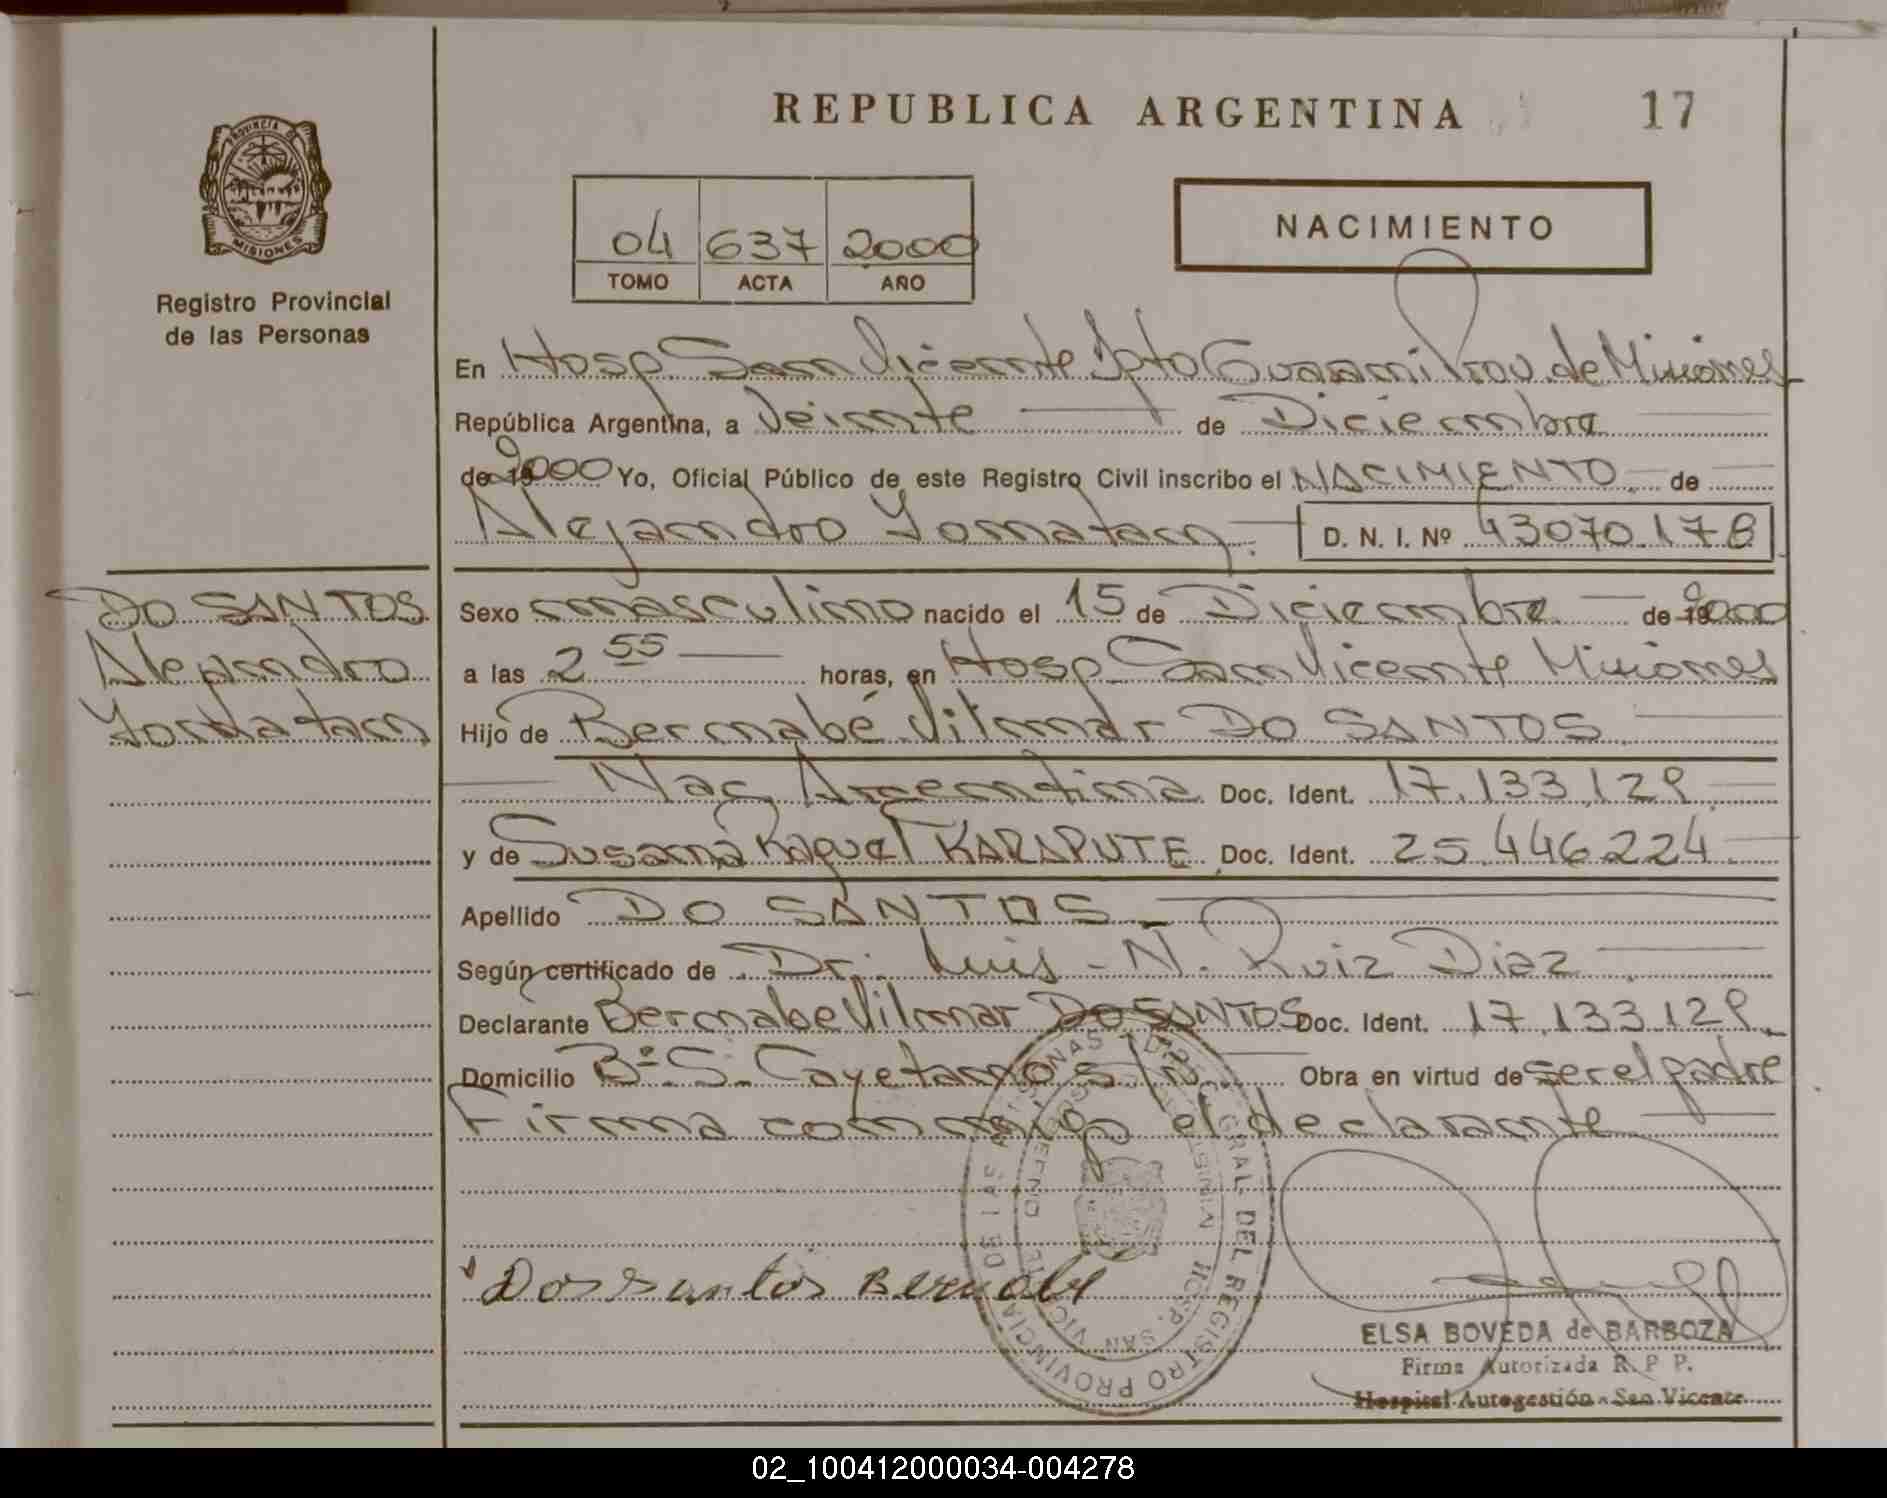 REPUBLICA ARGENTINA
17
PROVINCIA DE
MISIONES
Registro Provincial
de las Personas
04 637 2000
TOMO ACTA AÑO
NACIMIENTO
En Hosp. San Vicente Dpto Guaraní Prov. de Misiones
República Argentina, a Veinte de Diciembre
de 19 2000 Yo, Oficial Público de este Registro Civil inscribo el NACIMIENTO de
Alejandro Yonatan. D. N. I. Nº 43070.178
DO SANTOS
Alejandro
Yonatan
Sexo masculino nacido el 15 de Diciembre de 19 2000
a las 2 55 horas, en Hosp San Vicente Misiones
Hijo de Bernabé Vilmar DO SANTOS
Nac Argentina Doc. Ident. 17.133.129
y de Susana Raquel KARAPUTE Doc. Ident. 25.446.224
Apellido DO SANTOS
Según certificado de Dr. Luis N. Ruiz Diaz
Declarante Bernabe Vilmar DO SANTOS Doc. Ident. 17.133.129
Domicilio Bº S. Cayetano s/n Obra en virtud de ser el padre
Firma conmigo el declarante
Dos santos Bernabe
DIR. GRAL. DEL REGISTRO PROVINCIAL DE LAS PERSONAS
HOSP. SAN VICENTE
ELSA BOVEDA de BARBOZA
Firma Autorizada R. P. P.
Hospital Autogestión - San Vicente
02_100412000034-004278